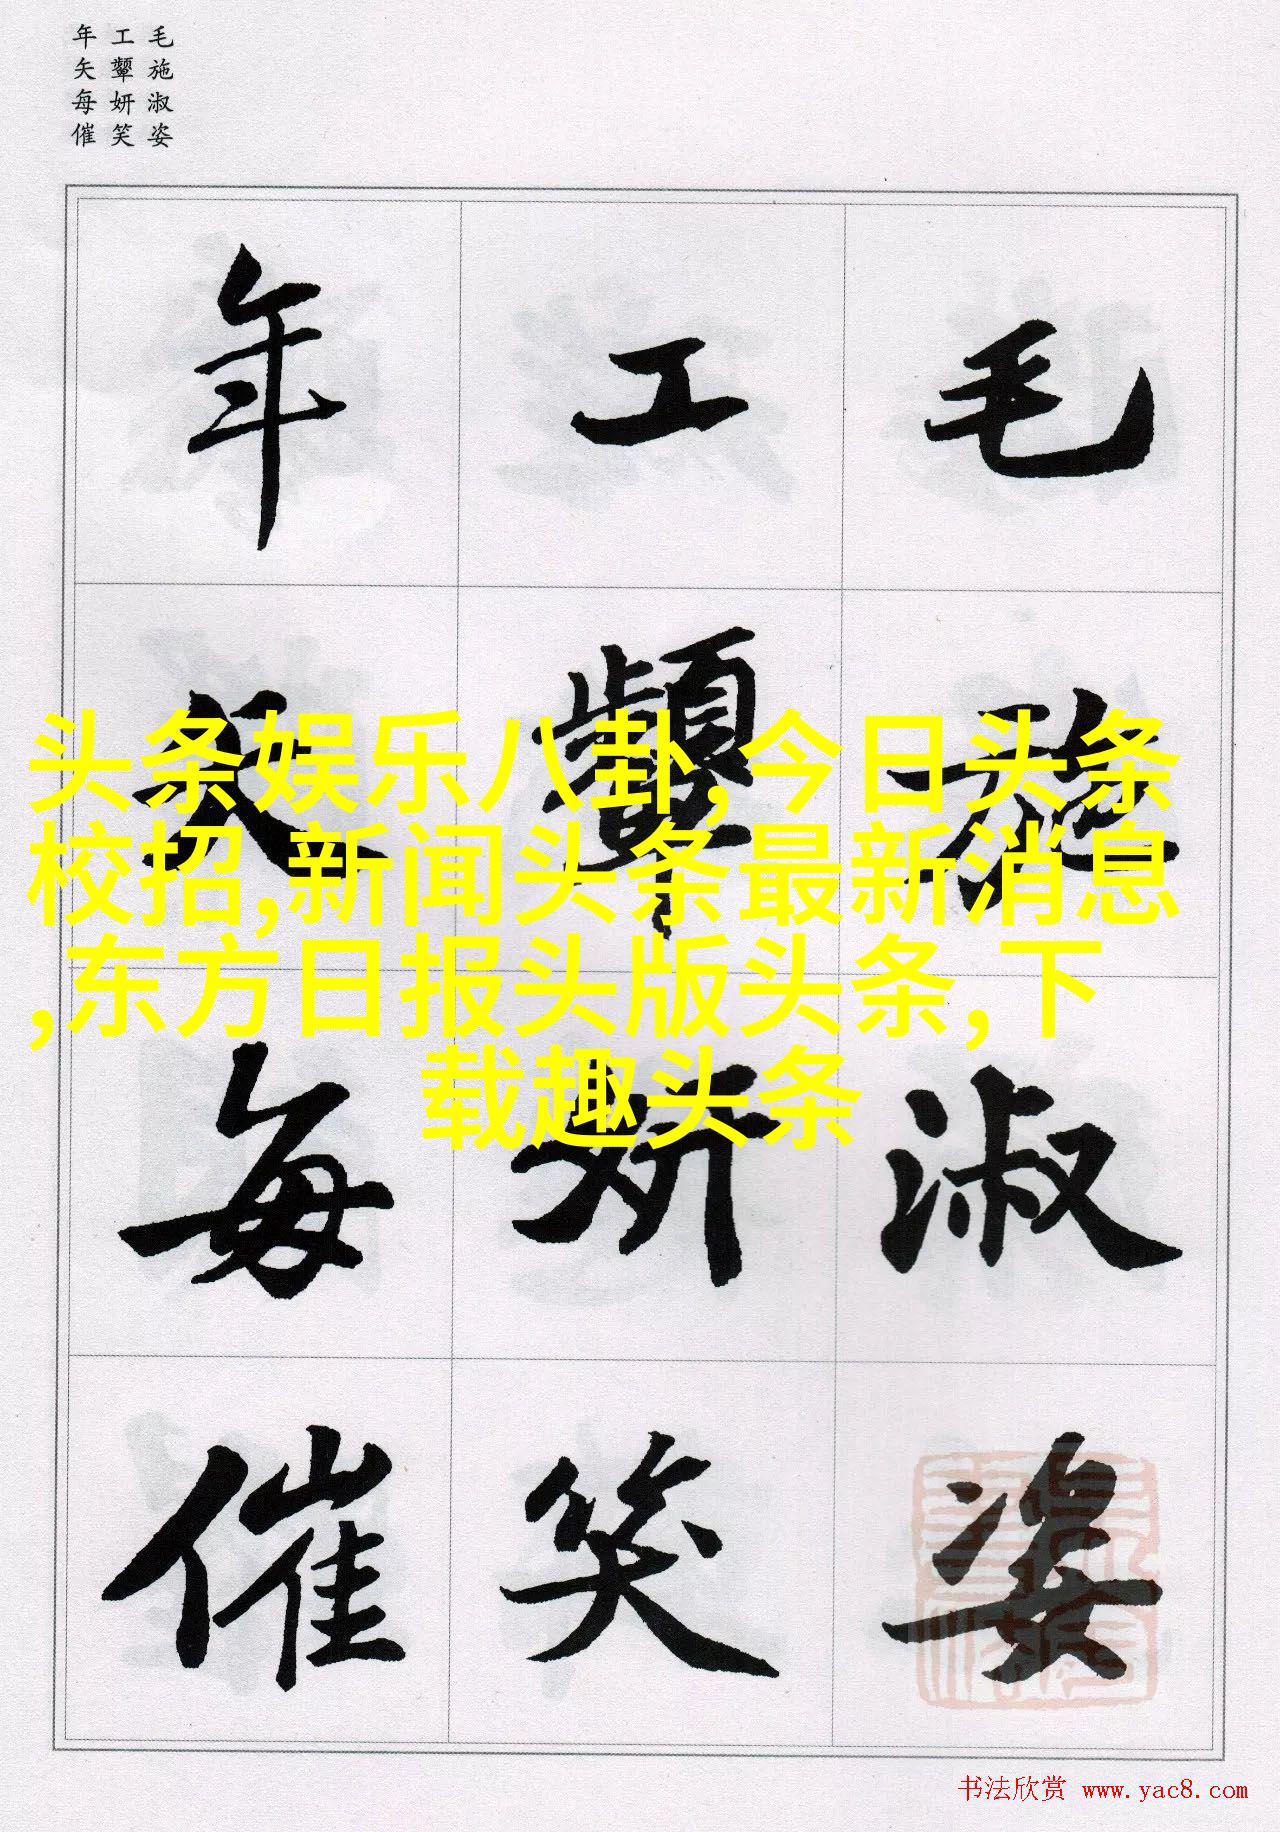 毛施淑姿
工颦妍笑
年矢每催
毛施淑姿
工颦妍笑
年矢每催
头条娱乐八卦,今日头条
校招,新闻头条最新消息
,东方日报头版头条,下
载趣头条
书法欣赏 www.yac8.com